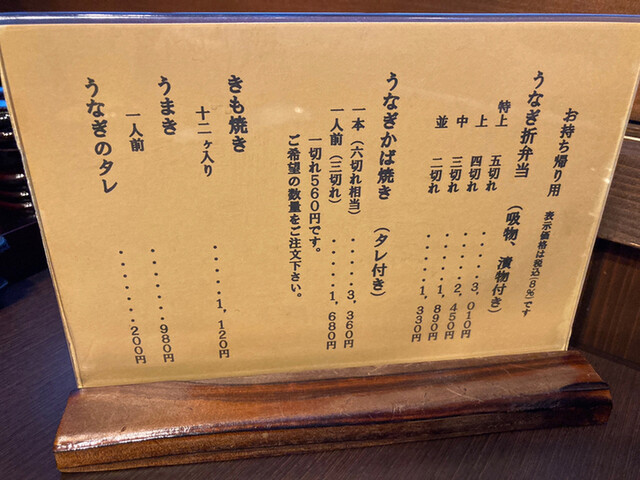 お持ち帰り用 表示価格は税込(8%)です
うなぎ折弁当 (吸物、漬物付き)
特上 五切れ ・・・・・3,010円
上 四切れ ・・・・・2,450円
中 三切れ ・・・・・1,890円
並 二切れ ・・・・・1,330円
うなぎかば焼き (タレ付き)
一本(六切れ相当)・・・・3,360円
一人前(三切れ)・・・・・1,680円
一切れ560円です。
ご希望の数量をご注文下さい。
きも焼き
十二ヶ入り ・・・・・1,120円
うまき
一人前 ・・・・・・・980円
うなぎのタレ ・・・・・・・200円